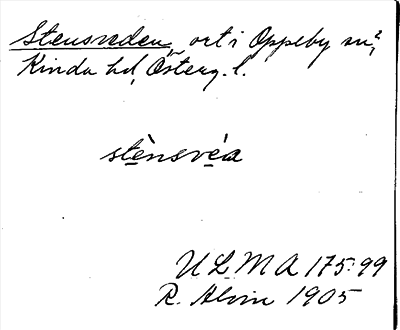 Stensveden, ort i Oppeby sn,
Kinda hd, Österg. l.
stènsvéa
ULMA 175:99
R. Alvin 1905